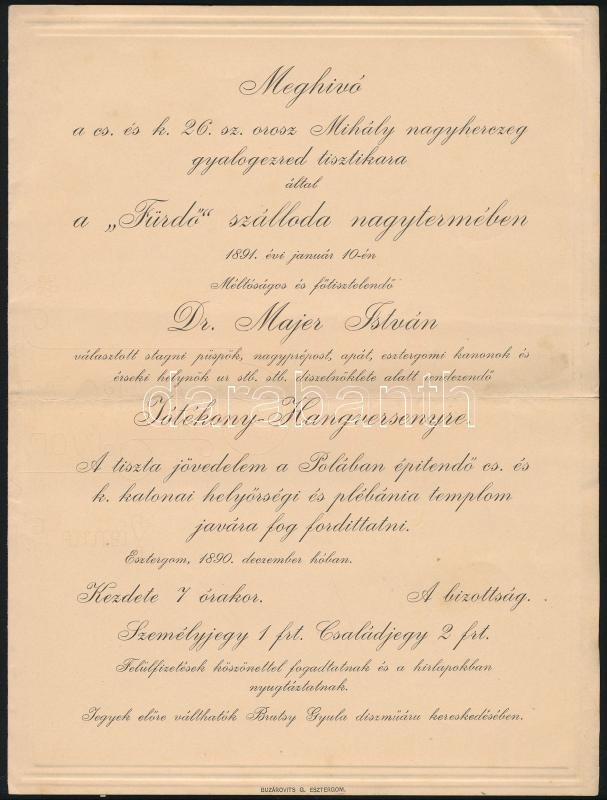 Meghivó
a cs. és k. 26. sz. orosz Mihály nagyherczeg
gyalogezred tisztikara
által
a „Fürdő“ szálloda nagytermében
1891. évi január 10-én
Méltóságos és főtisztelendő
Dr. Majer István
választott stagni püspök, nagyprépost, apát, esztergomi kanonok és
érseki helynök ur stb. stb. diszelnöklete alatt rendezendő
darabanth
Jótékony-Hangversenyre.
A tiszta jövedelem a Polában épitendő cs. és
k. katonai helyőrségi és plébánia templom
javára fog fordittatni.
Esztergom, 1890. deczember hóban.
Kezdete 7 órakor. A bizottság.
Személyjegy 1 frt. Családjegy 2 frt.
Felülfizetések köszönettel fogadtatnak és a hirlapokban
nyugtáztatnak.
Jegyek előre válthatók Brutsy Gyula diszműáru kereskedésében.
BUZÁROVITS G. ESZTERGOM.